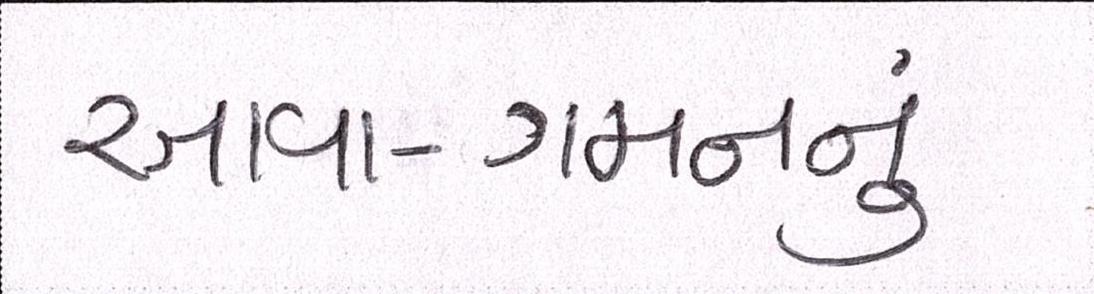 આવા-ગમનનું